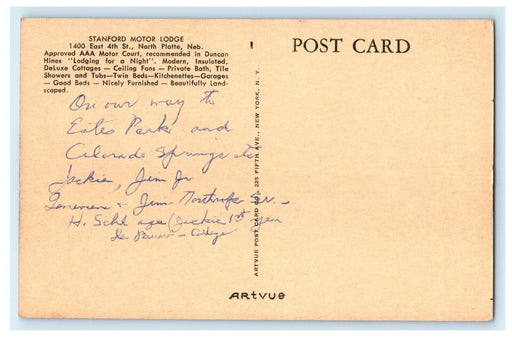 STANFORD MOTOR LODGE
1400 East 4th St., North Platte, Neb.
Approved AAA Motor Court, recommended in Duncan
Hines "Lodging for a Night". Modern, Insulated,
DeLuxe Cottages — Ceiling Fans — Private Bath, Tile
Showers and Tubs—Twin Beds—Kitchenettes—Garages
— Good Beds — Nicely Furnished — Beautifully Land-
scaped.
POST CARD
On our way to
Estes Park and
Colorado Springs
Jackie, Jim Jr
Jim Northrup Sr. -
H. Schl age (Jackie 1st year
College
ARTVUE POST CARD CO., 225 FIFTH AVE., NEW YORK, N. Y.
ARTVUE